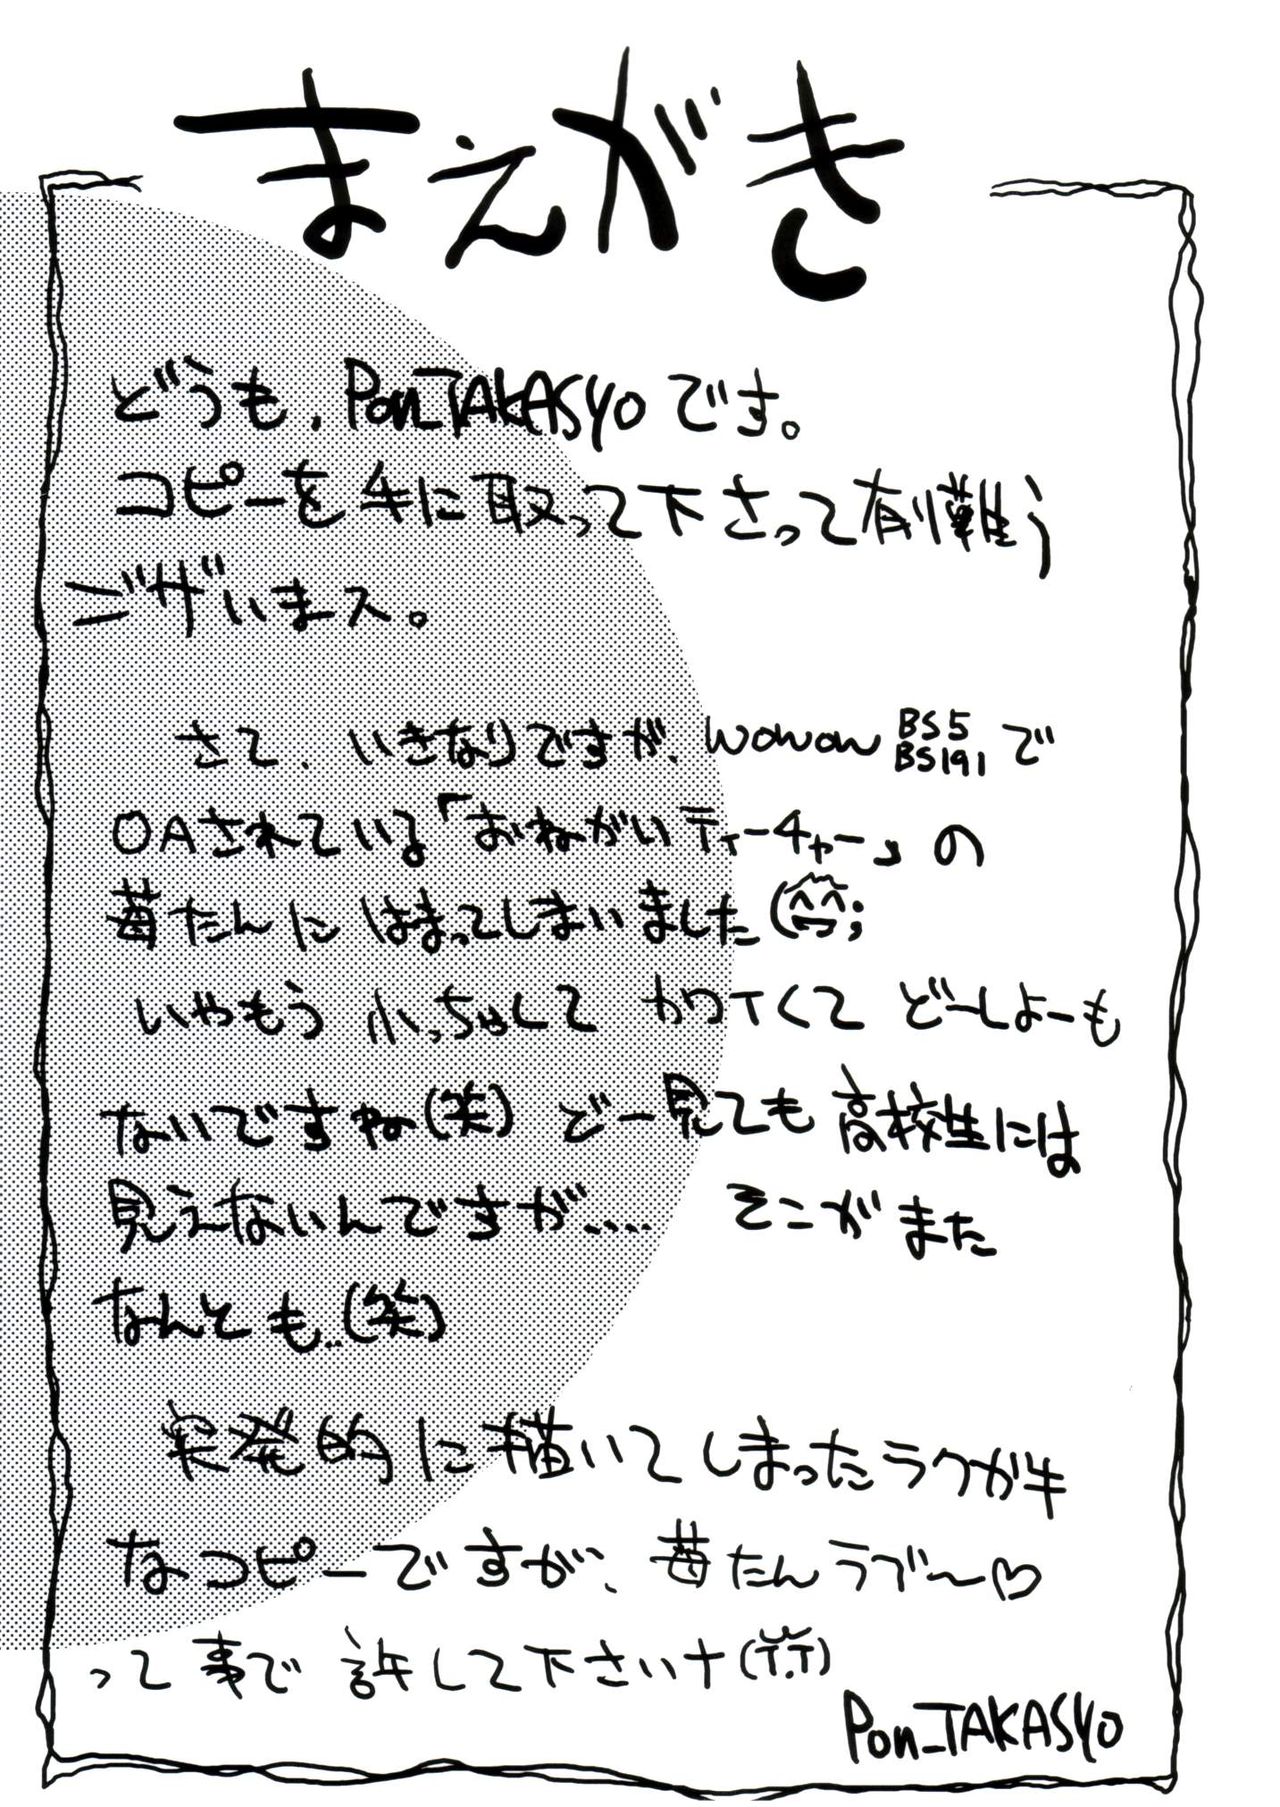 まえがき
どうも、Pon_TAKASYOです。
コピーを手に取って下さって有り難う
ございまス。
さて、いきなりですが、WOWOW BS5 BS191で
OAされている「おねがいティーチャー」の
苺たんにはまってしまいました(^^;
いやもう ちっちゃくて カワイくて どーしよーも
ないですね(笑) どー見ても高校生には
見えないんですが.... そこがまた
なんとも..(笑)
突発的に描いてしまったラクガキ
なコピーですが、苺たんラブ〜♡
って事で 許して下さい十(T.T)
Pon_TAKASYO